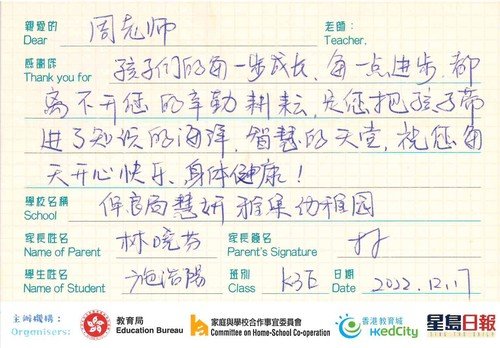 親愛的 周老师 老師：
Dear Teacher,
感謝您 孩子们的每一步成长、每一点进步、都
Thank you for
离不开您的辛勤耕耘，是您把孩子带
进了知识的海洋，智慧的天堂，祝您每
天开心快乐、身体健康！
學校名稱 保良局慧妍雅集幼稚园
School
家長姓名 林晓芬 家長簽名
Name of Parent Parent's Signature
學生姓名 施浩陽 班別 K3E 日期 2022.12.17
Name of Student Class Date
主辦機構： 教育局 家庭與學校合作事宜委員會 香港教育城 星島日報
Organisers: Education Bureau Committee on Home-School Co-operation HKedCity SING TAO DAILY